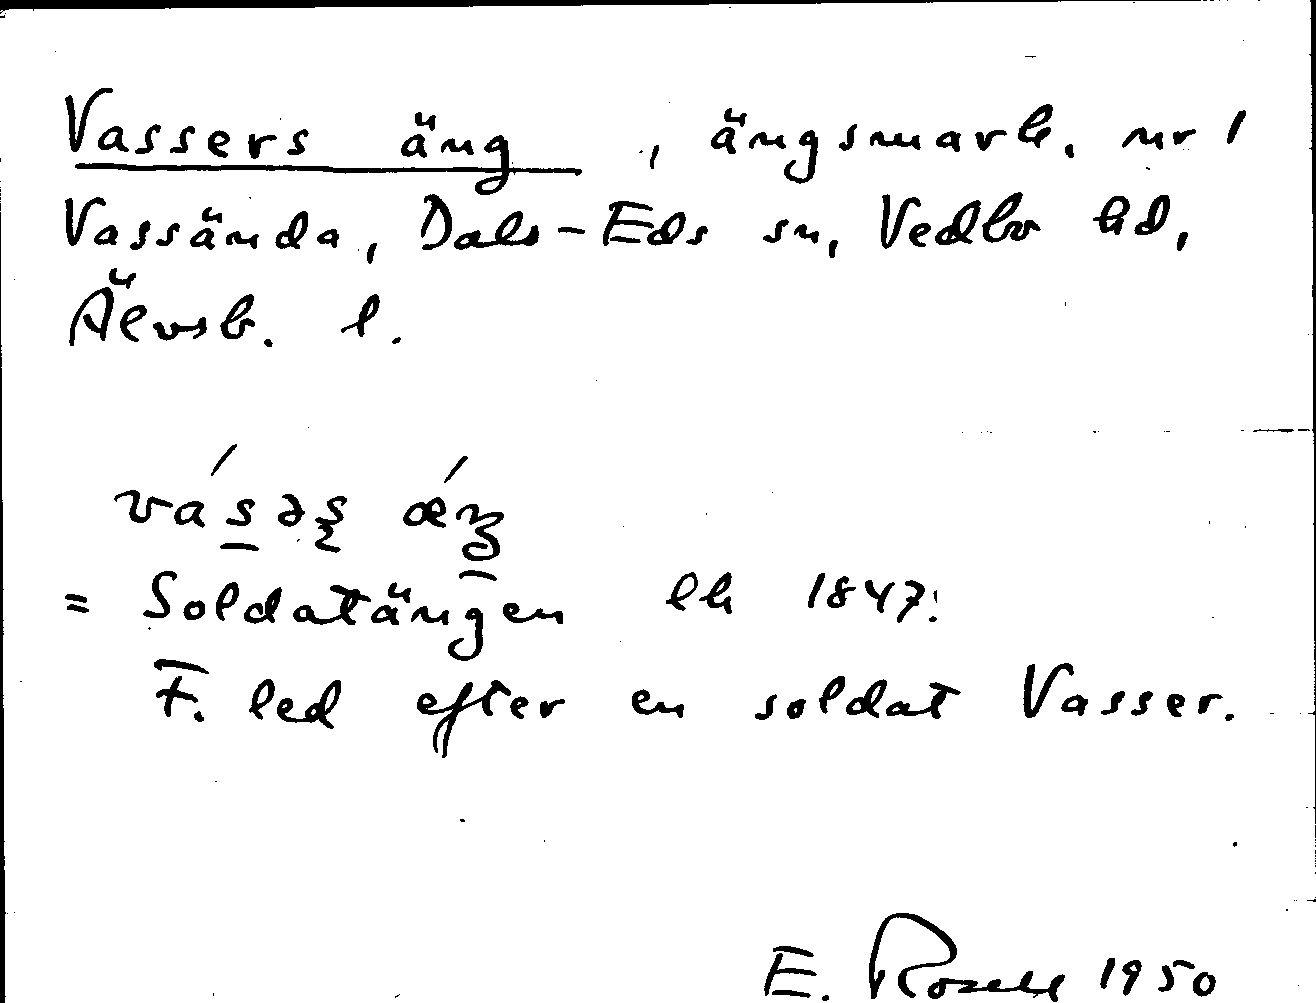 Vassers äng, ängsmark. nr 1
Vassända, Dals-Eds sn, Vedbo hd,
Älvsb. l.
= Soldatängen lh 1847.
F. led efter en soldat Vasser.
E. Rosell 1950